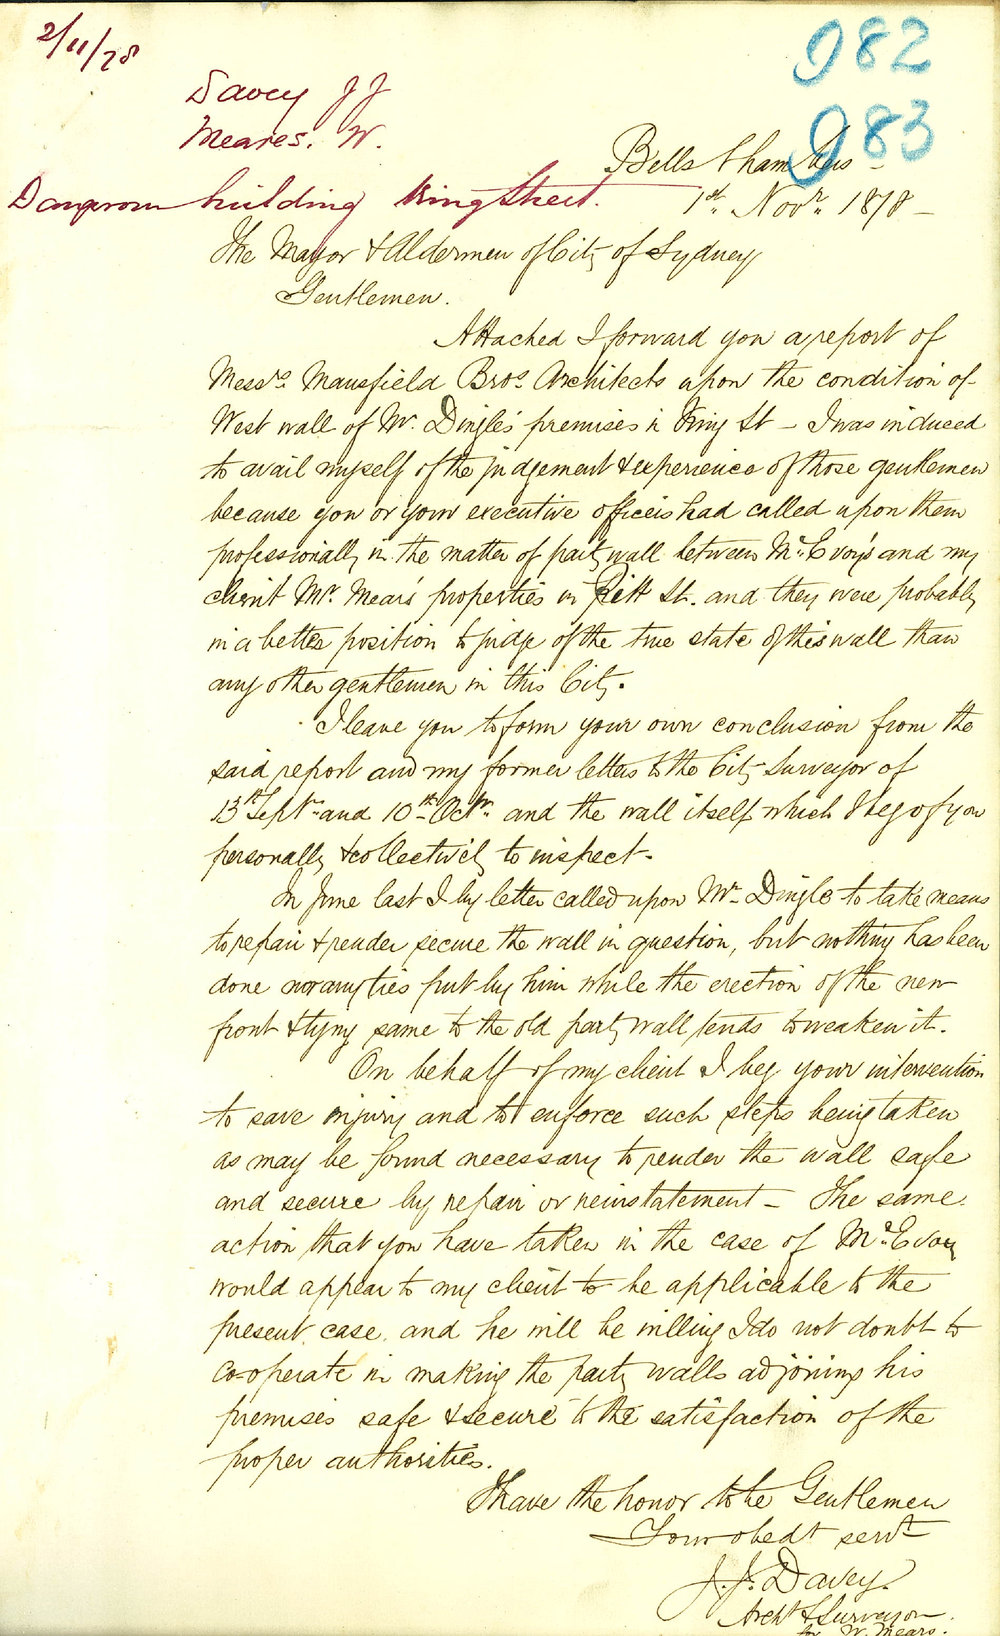 2/11/78
982
983
Davey J J
Meares. W.
Dangerous building King Street.
Bells Chambers -
1st. Novr. 1878 -
The Mayor & Aldermen of City of Sydney
Gentlemen.
Attached I forward you a report of
Messrs. Mansfield Bros. Architects upon the condition of
West wall of Mr. Dingle's premises in King St - I was induced
to avail myself of the judgement & experience of those gentlemen
because you or your executive officers had called upon them
professionally in the matter of party wall between McEvoy's and my
client Mr. Mears' properties in Pitt St. and they were probably
in a better position to judge of the true state of this wall than
any other gentlemen in this City.
I leave you to form your own conclusion from the
said report and my former letters to the City Surveyor of
13th Septr. and 10th Octr. and the wall itself which I beg of you
personally & collectively to inspect.
In June last I by letter called upon Mr. Dingle to take means
to repair & render secure the wall in question, but nothing has been
done nor any ties put by him while the erection of the new
front & tying same to the old party wall tends to weaken it.
On behalf of my client I beg your intervention
to save injury and to enforce such steps being taken
as may be found necessary to render the wall safe
and secure by repair or reinstatement - The same
action that you have taken in the case of McEvoy
would appear to my client to be applicable to the
present case. and he will be willing I do not doubt to
co-operate in making the party walls adjoining his
premises safe & secure to the satisfaction of the
proper authorities.
I have the honor to be Gentlemen
Your obedt servt
J. J. Davey.
Archt & Surveyor.
for W. Mears.